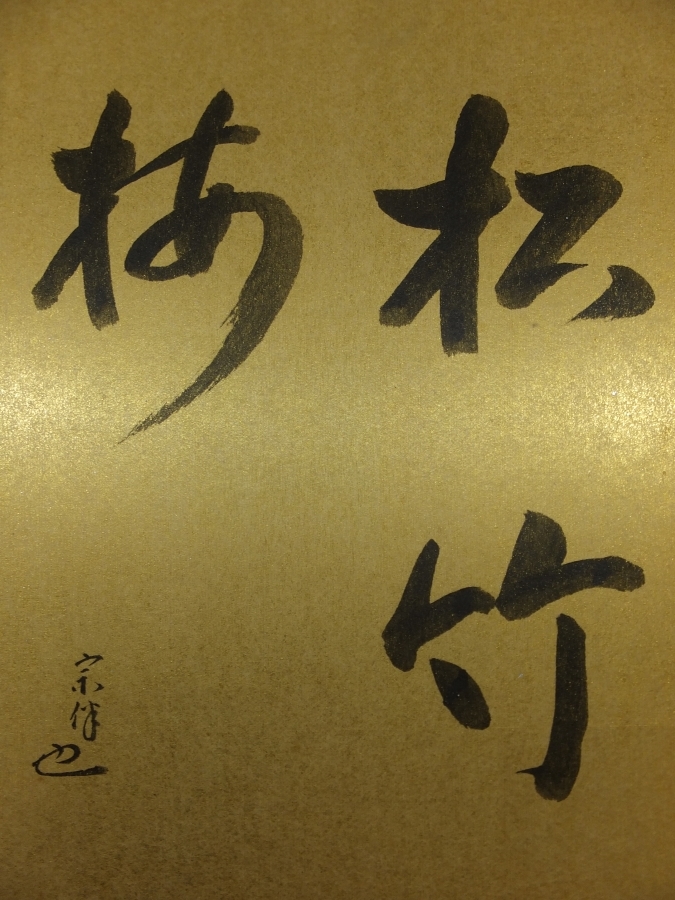 松竹
梅
宗伴也